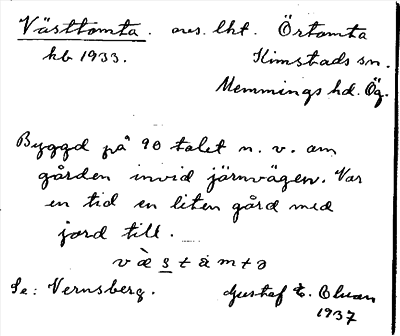 Västtomta. avs. lht. Örtomta
kb 1933. Kimstads sn.
Memmings hd. Ög.
Byggd på 90 talet n. v. om
gården invid järnvägen. Var
en tid en liten gård med
jord till.
v æ̀ s t å m t ə
Se: Vernsberg. Gustaf E. Olson
1937